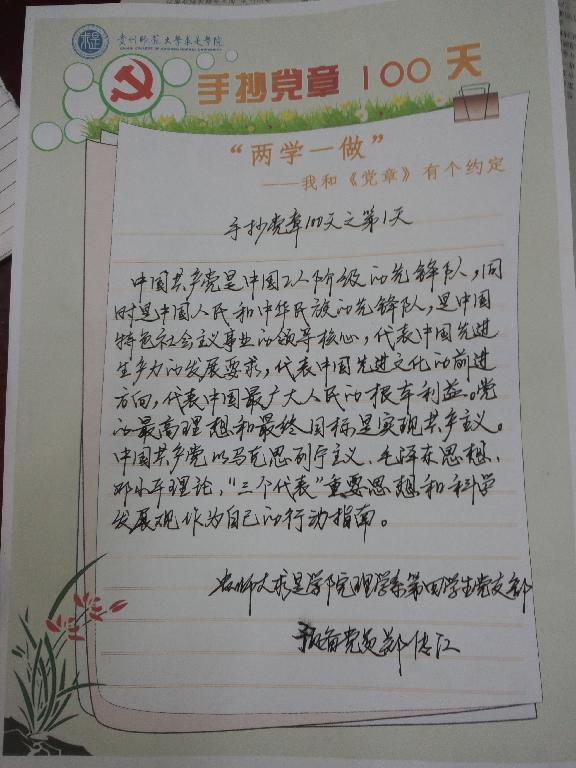 贵州师范大学求是学院
手抄党章100天
“两学一做”
——我和《党章》有个约定
手抄党章100天之第1天
中国共产党是中国工人阶级的先锋队,同
时是中国人民和中华民族的先锋队,是中国
特色社会主义事业的领导核心,代表中国先进
生产力的发展要求,代表中国先进文化的前进
方向,代表中国最广大人民的根本利益。党
的最高理想和最终目标是实现共产主义。
中国共产党以马克思列宁主义、毛泽东思想、
邓小平理论,“三个代表”重要思想和科学
发展观作为自己的行动指南。
师大求是学院理学系第四学生党支部
预备党员郑传江